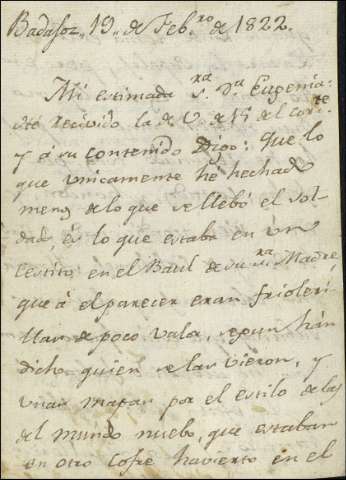 Badajoz, 19,, de Feb.ro de 1822.
Mi estimada S.ra D.a Eugenia:
hé recivido la de V. de 15 del corr.te
y á su contenido Digo: Que lo
que unicamente he hechado
menos de lo que se llebó el sol
dado, es lo que estaba en un
cestito en el Baul de su S.ra Madre,
que á el parecer eran frioleri
llas de poco valor, segun han
dicho quien se las vieron, y
unas mapas por el estilo de las
del mundo nuebo, que estaban
en otro Cofre havierto en el